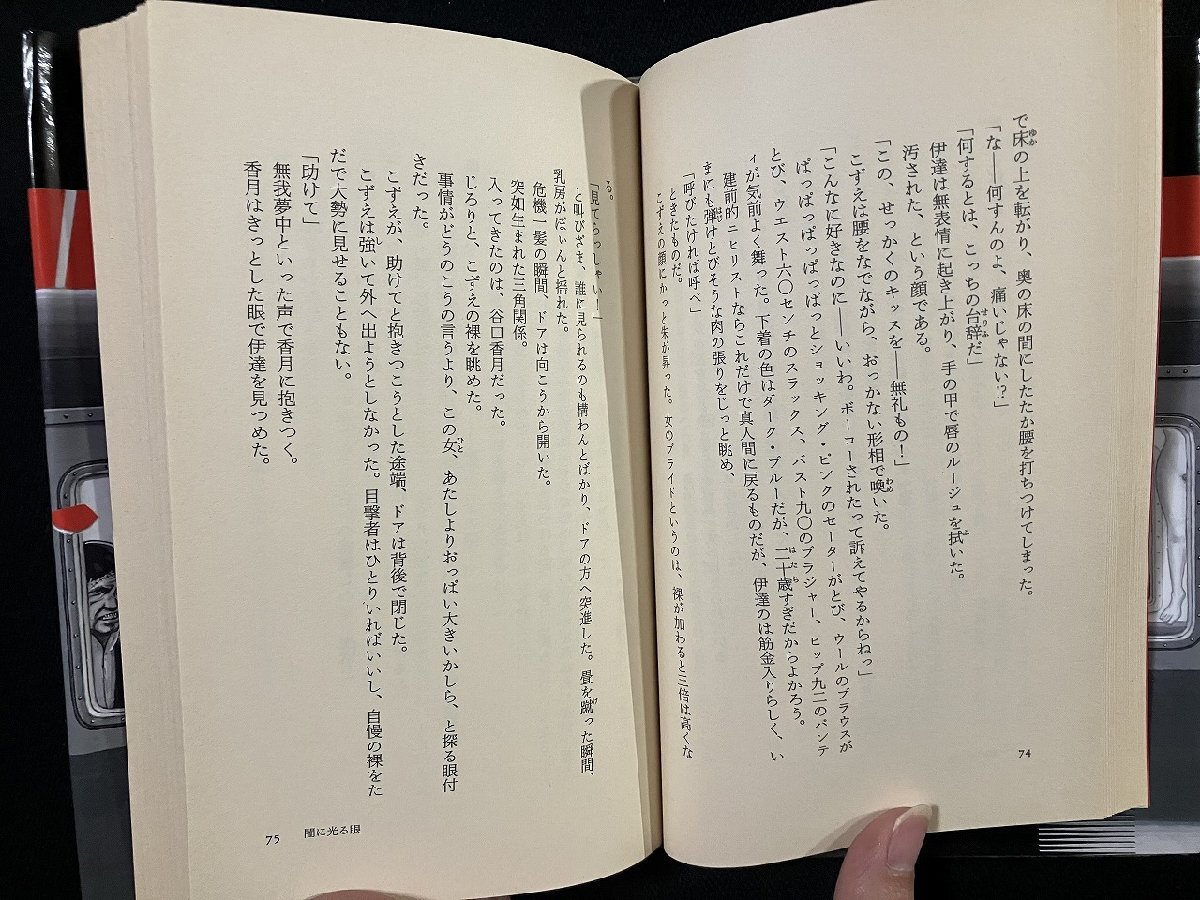 で床の上を転がり、奥の床の間にしたたか腰を打ちつけてしまった。
「な――何すんのよ、痛いじゃない?」
「何するとは、こっちの台辞だ」
伊達は無表情に起き上がり、手の甲で唇のルージュを拭いた。
汚された、という顔である。
「この、せっかくのキッスを――無礼もの!」
こずえは腰をなでながら、おっかない形相で喚いた。
「こんなに好きなのに――いいわ。ボーコーされたって訴えてやるからねっ」
ぱっぱっぱっぱっとショッキング・ピンクのセーターがとび、ウールのブラウスが
とび、ウエスト六〇センチのスラックス、バスト九〇のブラジャー、ヒップ九二のパンテ
ィが気前よく舞った。下着の色はダーク・ブルーだが、二十歳すぎだからよかろう。
建前的ニヒリストならこれだけで真人間に戻るものだが、伊達のは筋金入りらしく、い
まにも弾けとびそうな肉の張りをじっと眺め、
「呼びたければ呼べ」
ときたものだ。
こずえの顔にかっと朱が昇った。女のプライドというのは、裸が加わると三倍は高くな
74
る。
「見てらっしゃい!」
と叫びざま、誰に見られるのも構わんとばかり、ドアの方へ突進した。畳を蹴った瞬間、
乳房がぼいんと揺れた。
危機一髪の瞬間、ドアは向こうから開いた。
突如生まれた三角関係。
入ってきたのは、谷口香月だった。
じろりと、こずえの裸を眺めた。
事情がどうのこうの言うより、この女、あたしよりおっぱい大きいかしら、と探る眼付
きだった。
こずえが、助けてと抱きつこうとした途端、ドアは背後で閉じた。
こずえは強いて外へ出ようとしなかった。目撃者はひとりいればいいし、自慢の裸をた
だで大勢に見せることもない。
「助けて」
無我夢中といった声で香月に抱きつく。
香月はきっとした眼で伊達を見つめた。
75 闇に光る眼